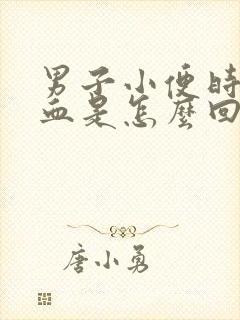 男子小便時
血是怎麼回
唐小勇